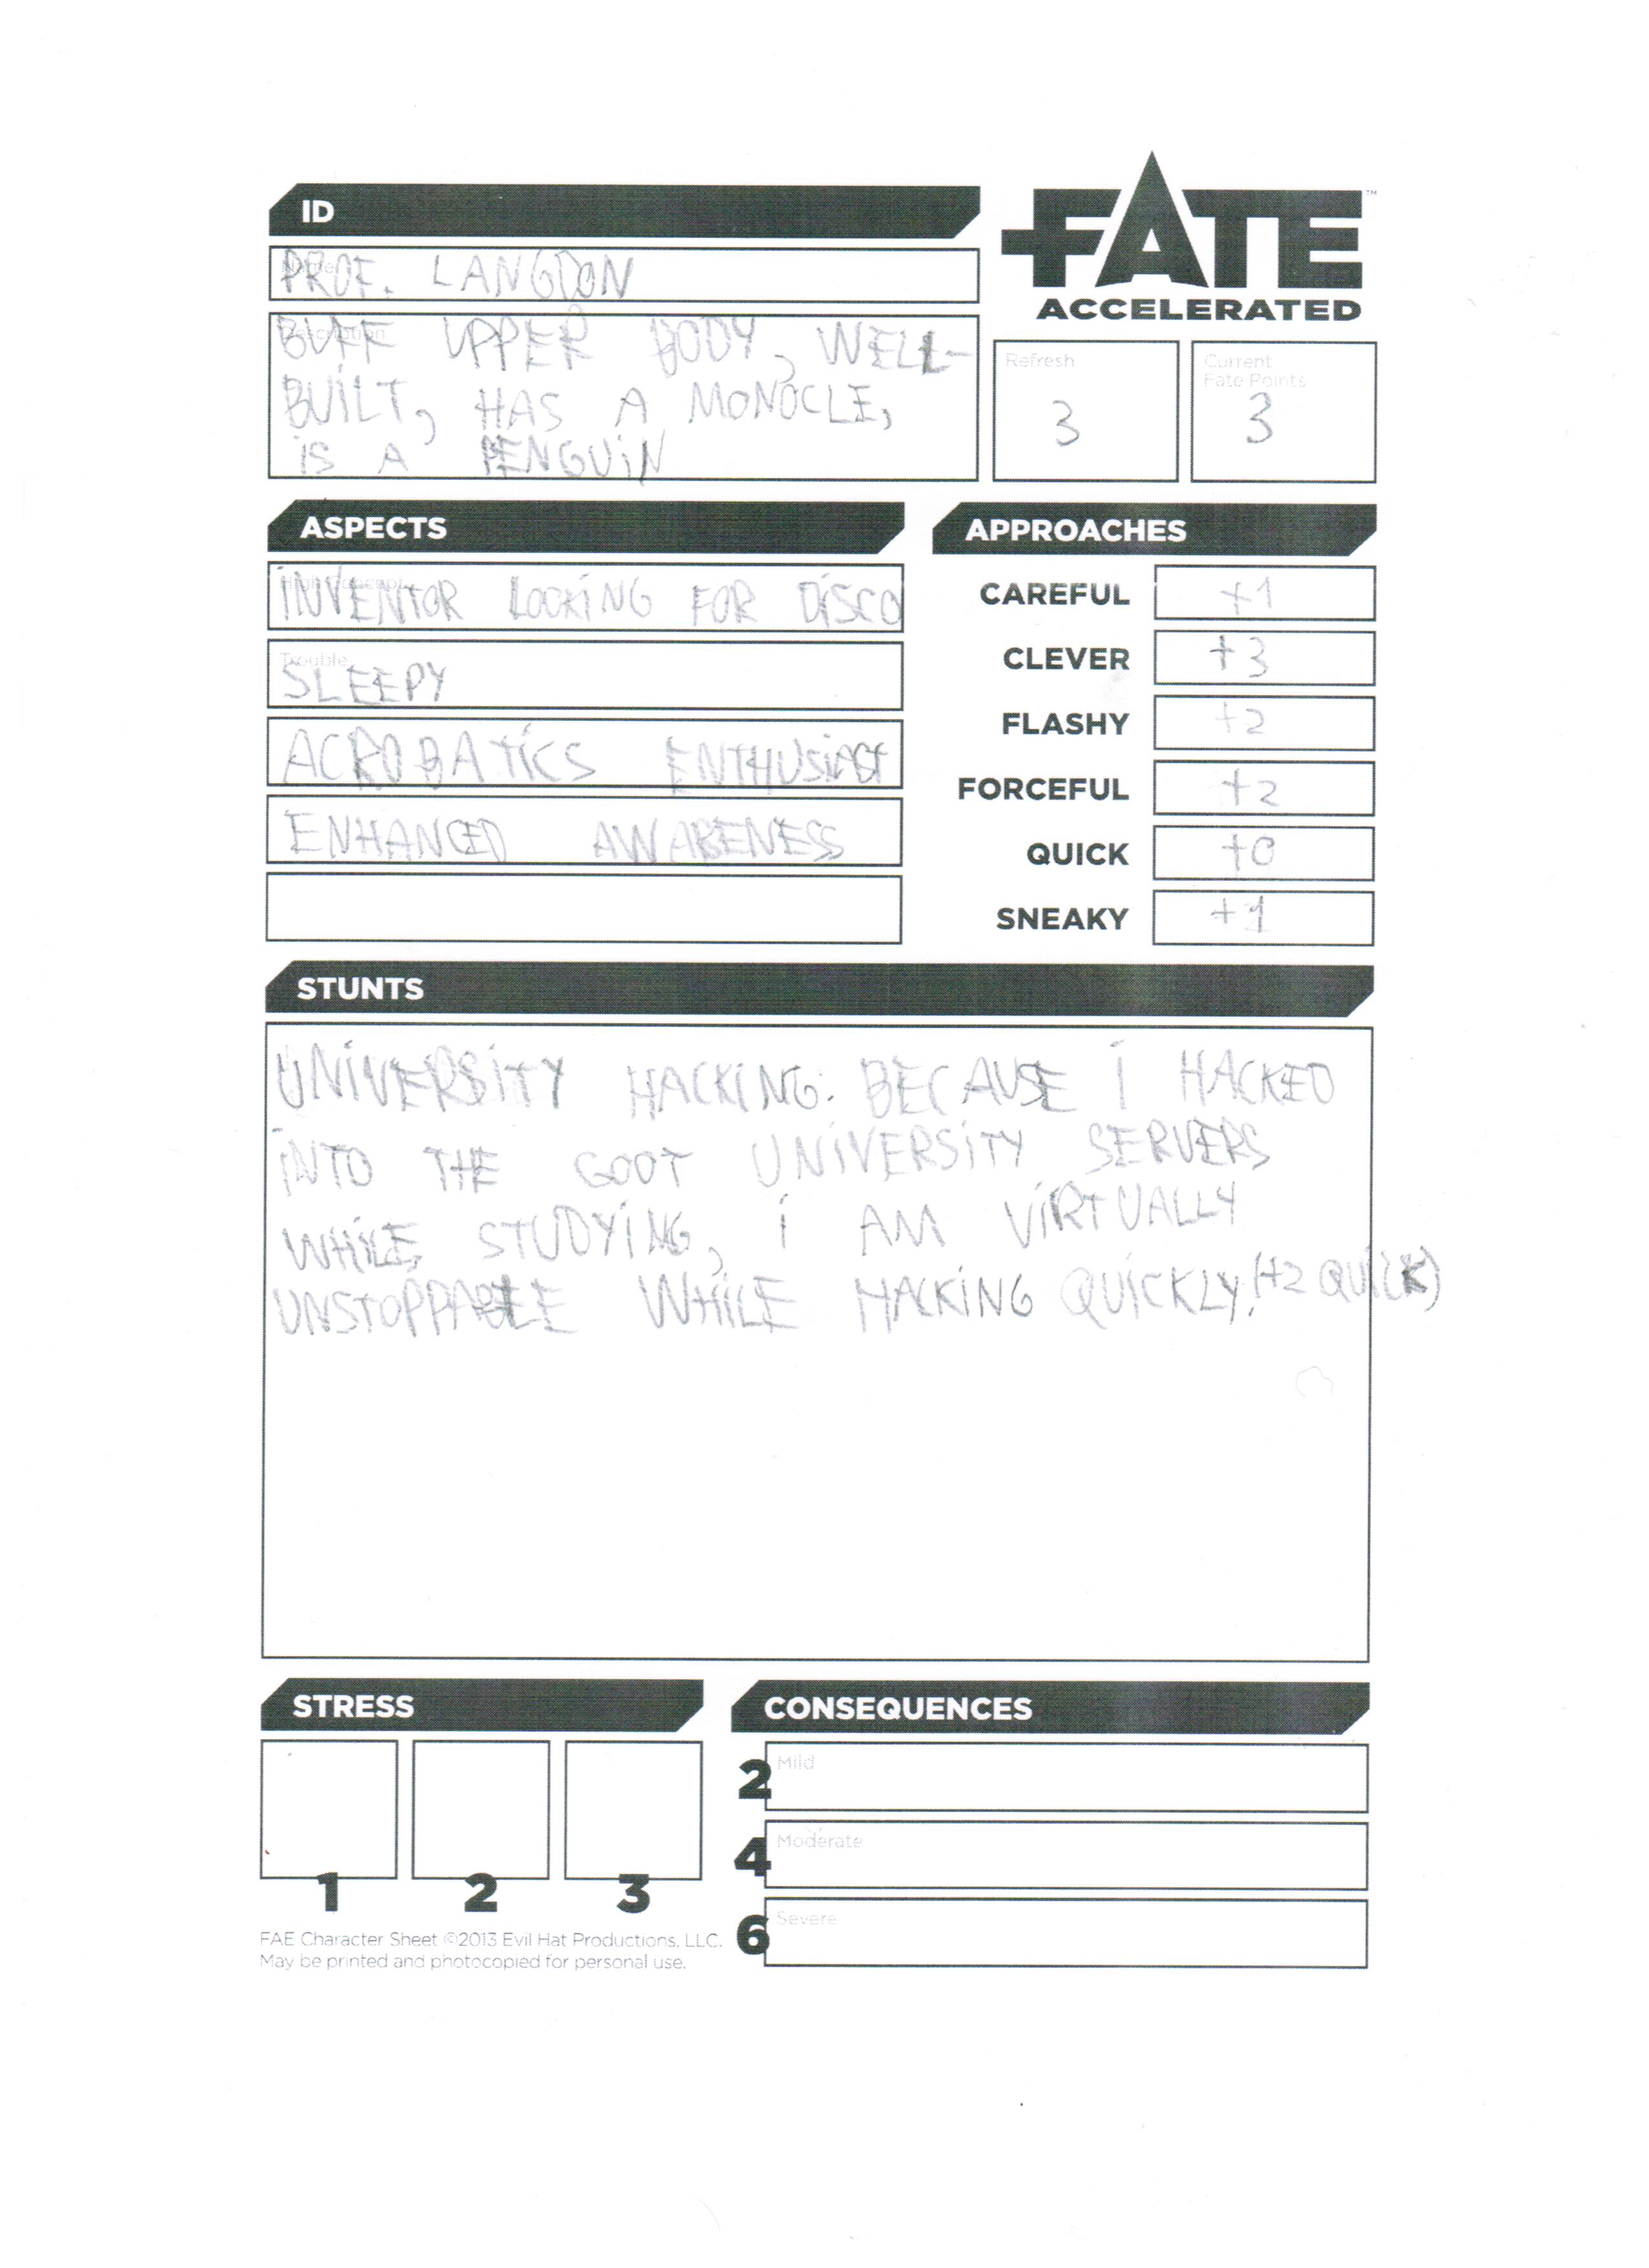 ID
FATE™
ACCELERATED
Name
PROF. LANGDON
Description
BUFF UPPER BODY, WELL-
BUILT, HAS A MONOCLE,
IS A PENGUIN
Refresh
3
Current
Fate Points
3
ASPECTS
High Concept
INVENTOR LOOKING FOR DISCO
Trouble
SLEEPY
ACROBATICS ENTHUSIAST
ENHANCED AWARENESS
APPROACHES
CAREFUL +1
CLEVER +3
FLASHY +2
FORCEFUL +2
QUICK +0
SNEAKY +1
STUNTS
UNIVERSITY HACKING: BECAUSE I HACKED
INTO THE GOOT UNIVERSITY SERVERS
WHILE STUDYING, I AM VIRTUALLY
UNSTOPPABLE WHILE HACKING QUICKLY. (+2 QUICK)
STRESS
1 2 3
CONSEQUENCES
2 Mild
4 Moderate
6 Severe
FAE Character Sheet ©2013 Evil Hat Productions, LLC.
May be printed and photocopied for personal use.